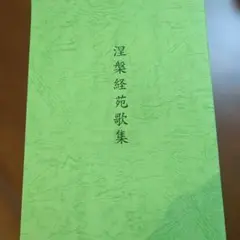 涅槃経苑歌集